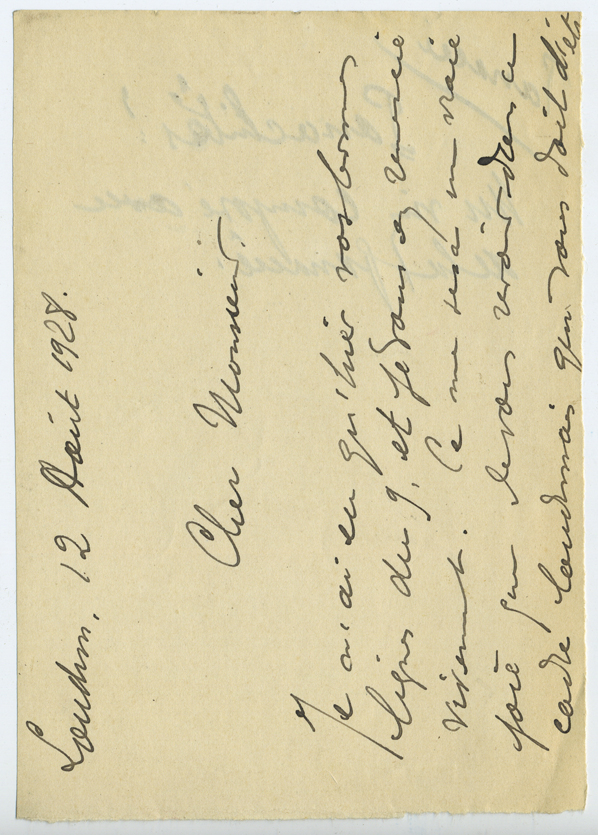 Loudun, 12 Août 1928.
Cher Monsieur,
Je n'ai eu qu'hier vos bonnes
lignes du 9, et je vous en remercie
vivement. Ce me sera une vraie
joie que de vous voir dans ce
cadre loudunais qui vous doit d'êt